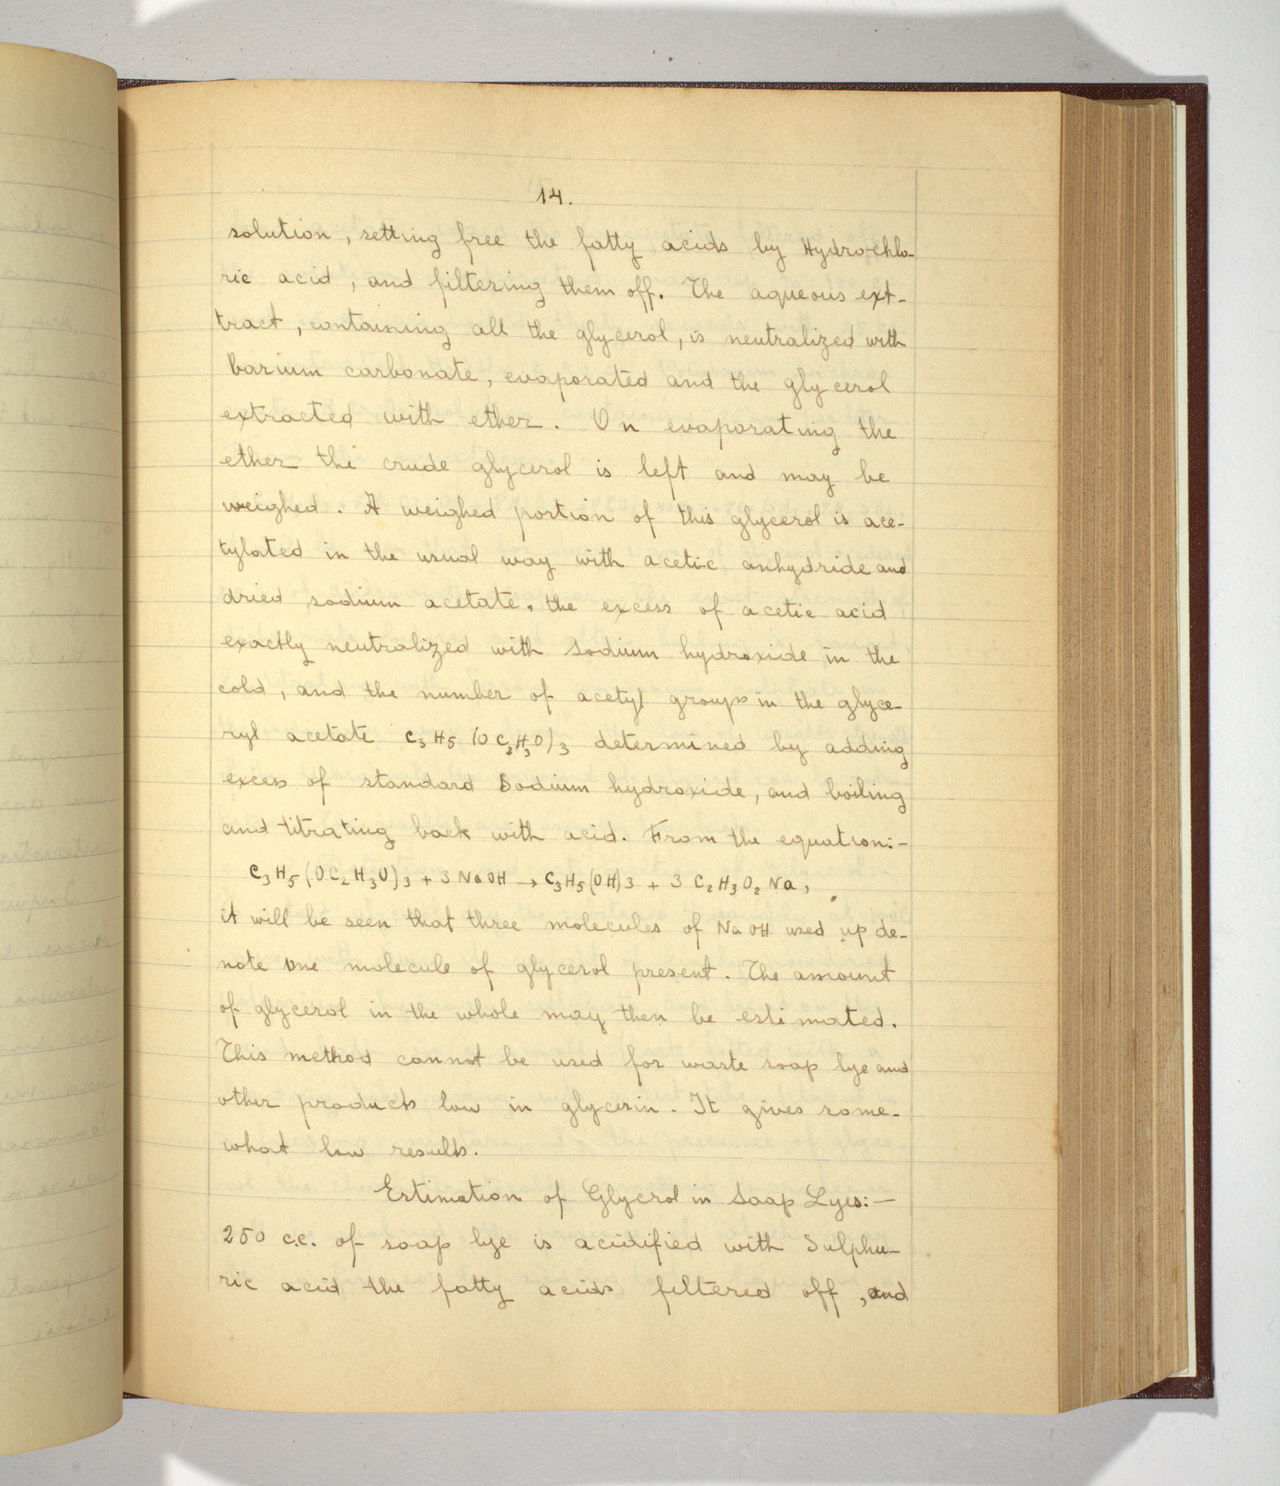 14.
solution, setting free the fatty acids by Hydro-chlo-
ric acid, and filtering them off. The aqueous ext-
tract, containing all the glycerol, is neutralized with
barium carbonate, evaporated and the glycerol
extracted with ether. On evaporating the
ether the crude glycerol is left and may be
weighed. A weighed portion of this glycerol is ace-
tylated in the usual way with acetic anhydride and
dried sodium acetate, the excess of acetic acid
exactly neutralized with sodium hydroxide in the
cold, and the number of acetyl groups in the glyce-
ryl acetate C₃H₅(OC₂H₃O)₃ determined by adding
excess of standard Sodium hydroxide, and boiling
and titrating back with acid. From the equation:-
C₃H₅(OC₂H₃O)₃ + 3 NaOH → C₃H₅(OH)3 + 3 C₂H₃O₂Na,
it will be seen that three molecules of NaOH used up de-
note one molecule of glycerol present. The amount
of glycerol in the whole may then be estimated.
This method cannot be used for waste soap lye and
other products low in glycerin. It gives some-
what low results.
Estimation of Glycerol in Soap Lyes:—
250 c.c. of soap lye is acidified with Sulphu-
ric acid the fatty acids filtered off, and